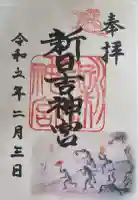 奉拝
新日吉神宮
令和五年二月三日